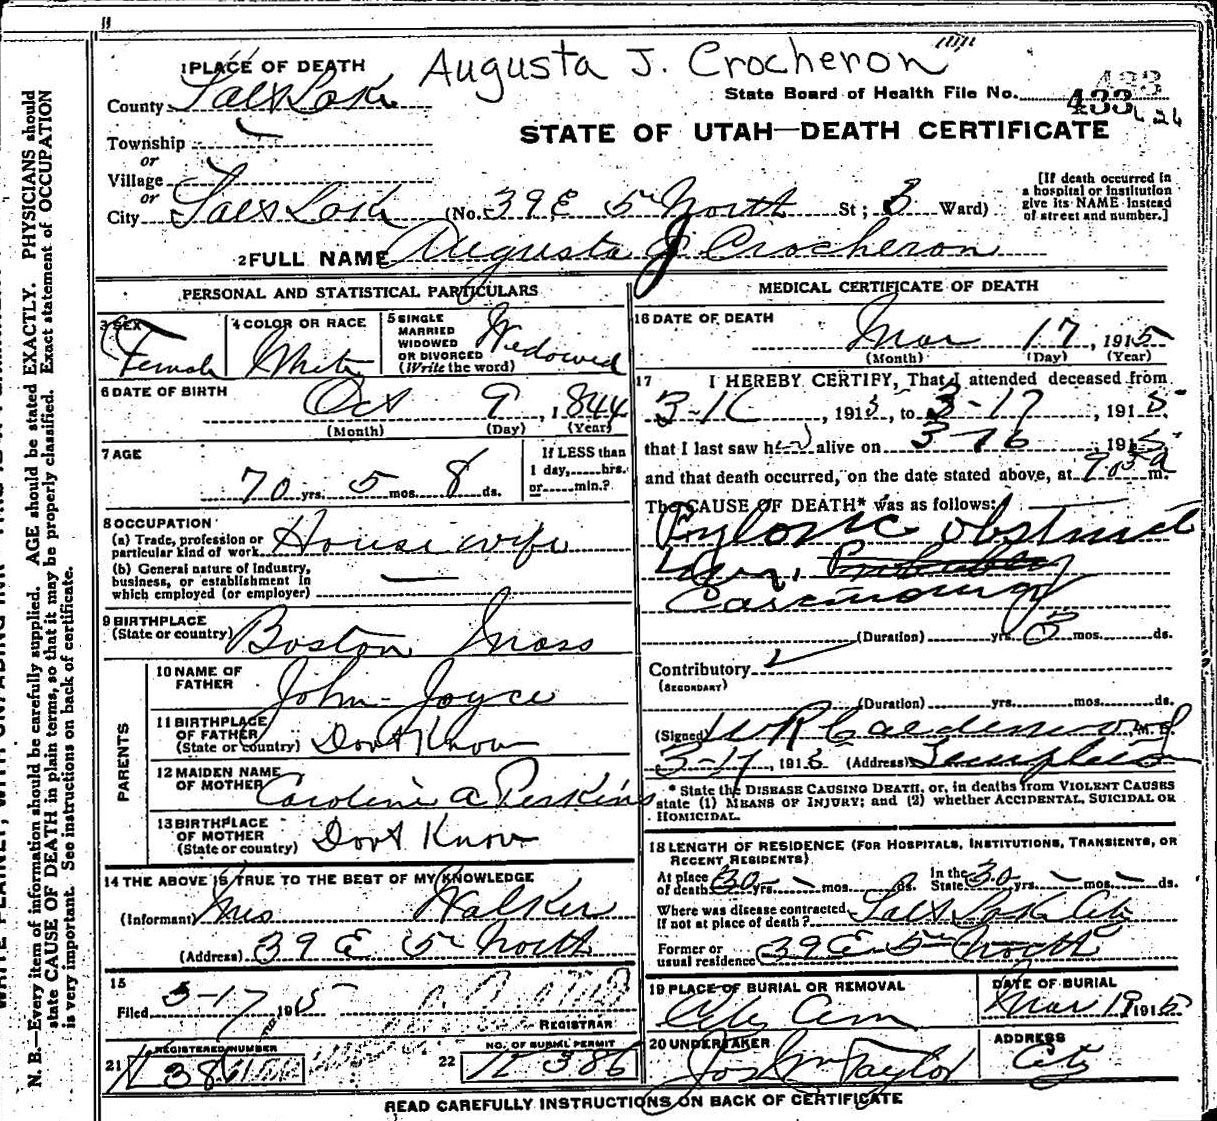 Augusta J. Crocheron
1 PLACE OF DEATH
County Salt Lake
State Board of Health File No. 433
Township
or
Village
or
City Salt Lake (No. 39 E 5th North St; 3 Ward)
STATE OF UTAH—DEATH CERTIFICATE
[If death occurred in
a hospital or institution
give its NAME instead
of street and number.]
2 FULL NAME Augusta J Crocheron
PERSONAL AND STATISTICAL PARTICULARS
3 SEX
Female
4 COLOR OR RACE
White
5 SINGLE
MARRIED
WIDOWED
OR DIVORCED
(Write the word)
Widowed
6 DATE OF BIRTH
Oct 9, 1844
(Month) (Day) (Year)
7 AGE
70 yrs. 5 mos. 8 ds.
If LESS than
1 day, hrs.
or min.?
8 OCCUPATION
(a) Trade, profession or
particular kind of work House wife
(b) General nature of industry,
business, or establishment in
which employed (or employer)
9 BIRTHPLACE
(State or country) Boston Mass
PARENTS
10 NAME OF
FATHER John Joyce
11 BIRTHPLACE
OF FATHER
(State or country) Dont Know
12 MAIDEN NAME
OF MOTHER Caroline A Perkins
13 BIRTHPLACE
OF MOTHER
(State or country) Dont Know
14 THE ABOVE IS TRUE TO THE BEST OF MY KNOWLEDGE
(Informant) Mrs Walker
(Address) 39 E 5th North
15
Filed 3-17 1915
REGISTRAR
21 REGISTERED NUMBER
22 NO. OF BURIAL PERMIT
K 386
MEDICAL CERTIFICATE OF DEATH
16 DATE OF DEATH
Mar 17, 1915
(Month) (Day) (Year)
17 I HEREBY CERTIFY, That I attended deceased from
, 191 , to 3-17, 1915
that I last saw her alive on 3-16 1915
and that death occurred, on the date stated above, at m.
The CAUSE OF DEATH* was as follows:
Pyloric obstruct
(Duration) yrs. mos. ds.
Contributory
(SECONDARY)
(Duration) yrs. mos. ds.
(Signed) W R Calderwood, M. D.
3-17, 1915 (Address) Templeton
* State the DISEASE CAUSING DEATH, or, in deaths from VIOLENT CAUSES
state (1) MEANS OF INJURY; and (2) whether ACCIDENTAL, SUICIDAL OR
HOMICIDAL.
18 LENGTH OF RESIDENCE (FOR HOSPITALS, INSTITUTIONS, TRANSIENTS, OR
RECENT RESIDENTS)
At place
of death 30 yrs. mos. ds.
In the
State 30 yrs. mos. ds.
Where was disease contracted
If not at place of death? Salt Lake City
Former or
usual residence 39 E 5th North
19 PLACE OF BURIAL OR REMOVAL
City Cem
DATE OF BURIAL
Mar 19 1915
20 UNDERTAKER
Jos Wm Taylor
ADDRESS
City
READ CAREFULLY INSTRUCTIONS ON BACK OF CERTIFICATE
N. B.—Every item of information should be carefully supplied. AGE should be stated EXACTLY. PHYSICIANS should
state CAUSE OF DEATH in plain terms, so that it may be properly classified. Exact statement of OCCUPATION
is very important. See instructions on back of certificate.